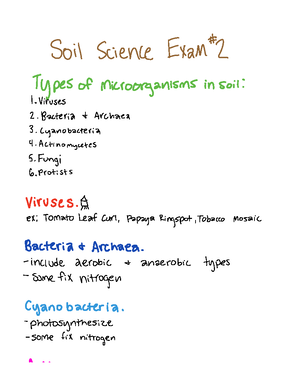 Soil Science Exam #2
Types of microorganisms in soil:
1. Viruses
2. Bacteria & Archaea
3. Cyanobacteria
4. Actinomycetes
5. Fungi
6. Protists
Viruses.
ex: Tomato Leaf Curl, Papaya Ringspot, Tobacco Mosaic
Bacteria & Archaea.
- include aerobic & anaerobic types
- Some fix nitrogen
Cyanobacteria.
- photosynthesize
- some fix nitrogen